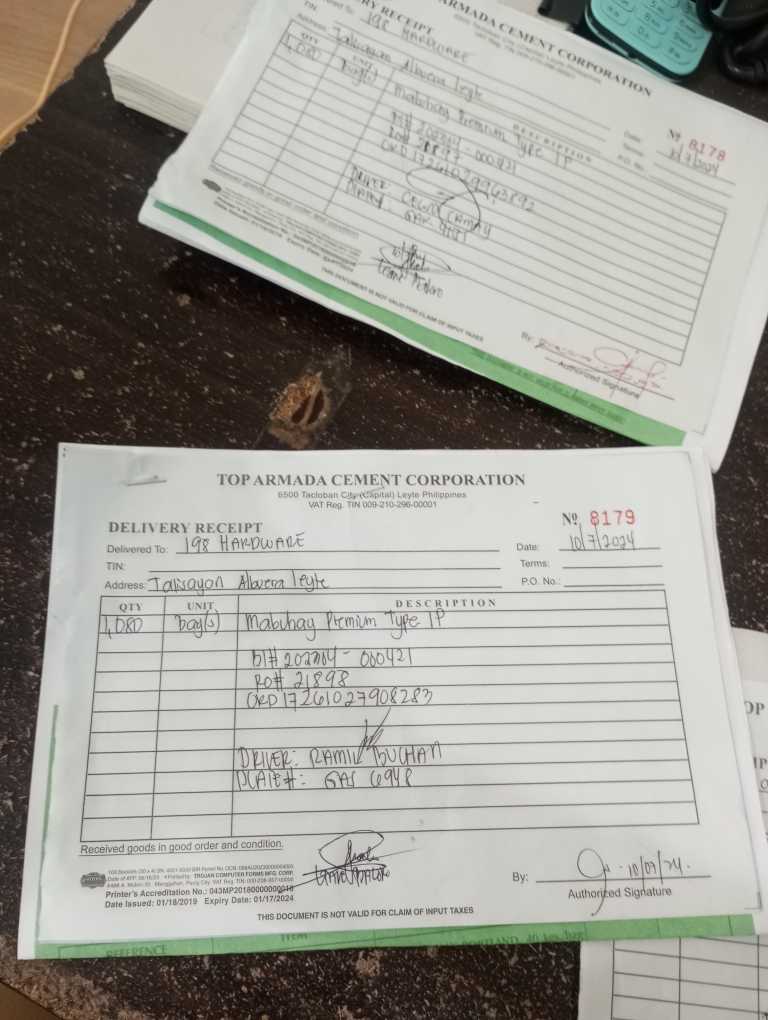 ARMADA CEMENT CORPORATION
RY RECEIPT
VAT Reg. TIN 009-210-296-00001
TIN:
198 HARDWARE
Address: Talisayon Albuera Leyte
Nº 8178
Date: 10/7/2024
Terms:
P.O. No.
QTY UNIT DESCRIPTION
1,080 bag(s) Mabuhay Premium Type 1P
BI# 202304 - 000421
DRIVER:
Received goods in good order and condition.
THIS DOCUMENT IS NOT VALID FOR CLAIM OF INPUT TAXES
By:
Authorized Signature
TOP ARMADA CEMENT CORPORATION
6500 Tacloban City (Capital) Leyte Philippines
VAT Reg. TIN 009-210-296-00001
DELIVERY RECEIPT
Nº 8179
Delivered To: 198 HARDWARE
Date: 10/7/2024
TIN:
Terms:
Address: Talisayon Albuera Leyte
P.O. No.:
QTY UNIT DESCRIPTION
1,080 bag(s) Mabuhay Premium Type 1P
BI# 202304 - 000421
RO# 21898
ORD 17261027908283
DRIVER: RAMIL BUCHAN
PLATE#: GAS 6948
Received goods in good order and condition.
Printer's Accreditation No.: 043MP20180000000018
Date Issued: 01/18/2019 Expiry Date: 01/17/2024
By: 10/07/24.
Authorized Signature
THIS DOCUMENT IS NOT VALID FOR CLAIM OF INPUT TAXES
REFERENCE ITEM
OP